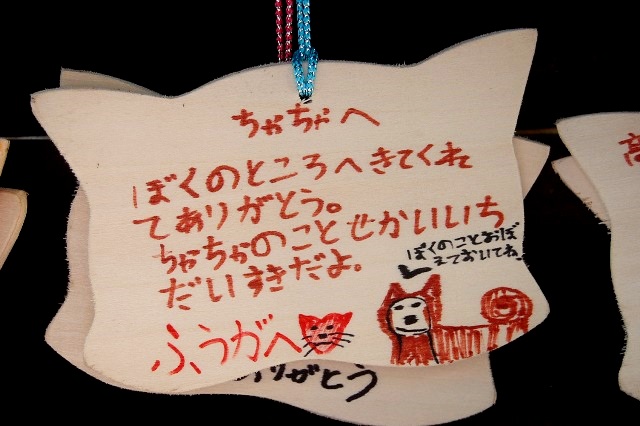 ちゃちゃへ
ぼくのところへきてくれ
てありがとう。
ちゃちゃのことせかいいち
だいすきだよ。
ぼくのことおぼ
えておいてね。
ふうがへ
ありがとう
高